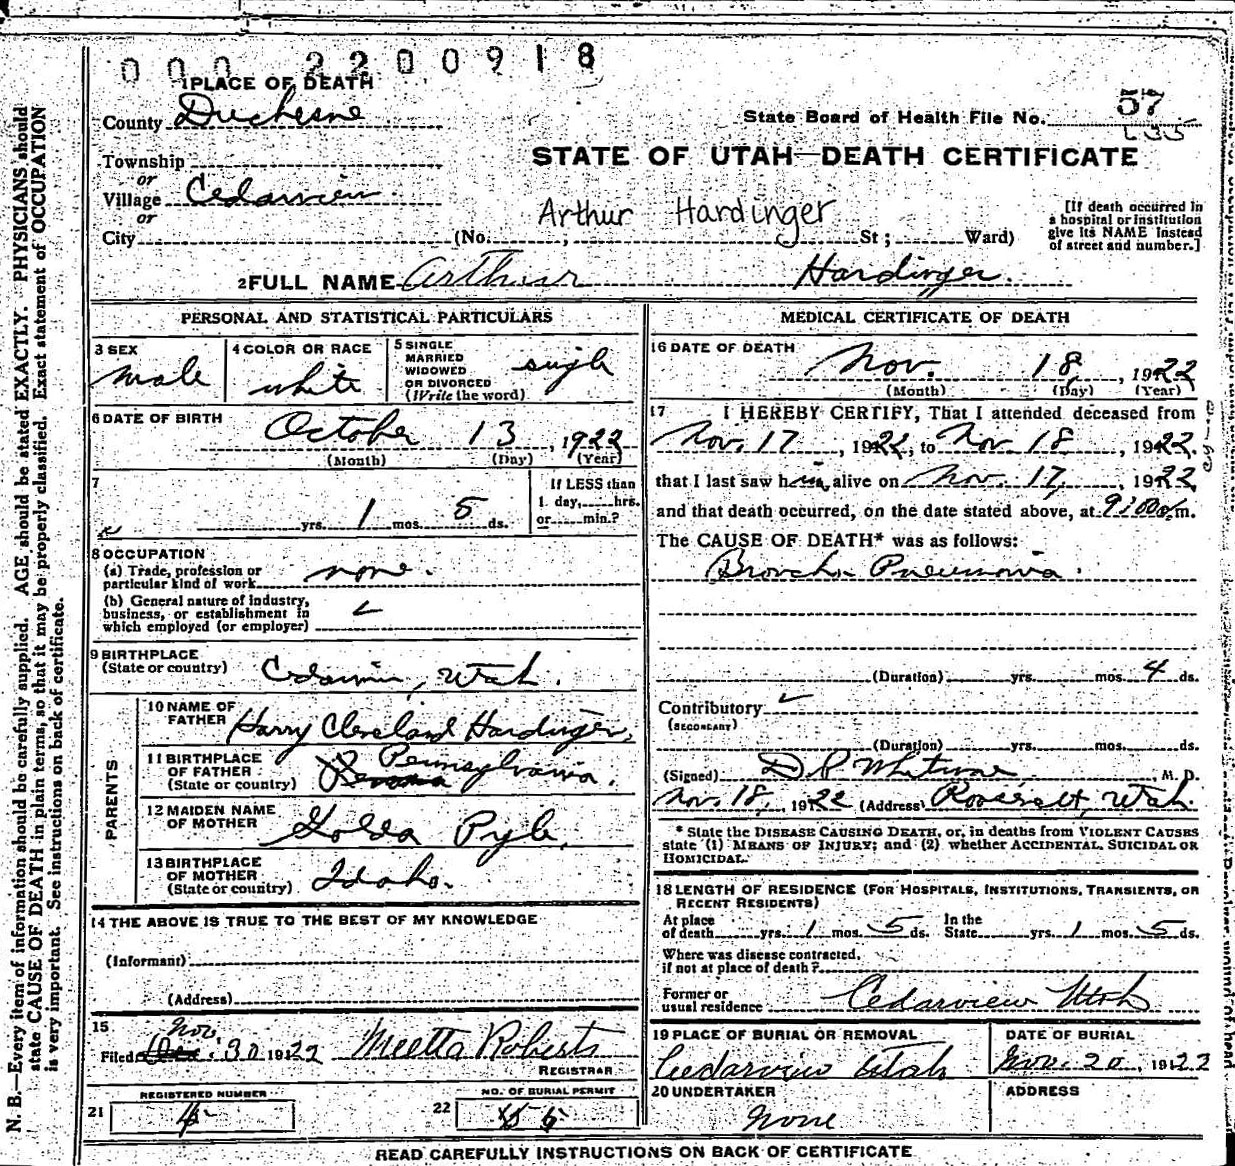 000 2200918
1 PLACE OF DEATH
County Duchesne
State Board of Health File No. 57
Township
or
STATE OF UTAH—DEATH CERTIFICATE
Village Cedarview
or
Arthur Hardinger
City (No. ; St ; Ward)
[If death occurred in
a hospital or institution
give its NAME instead
of street and number.]
2 FULL NAME Arthur Hardinger.
PERSONAL AND STATISTICAL PARTICULARS
3 SEX
male
4 COLOR OR RACE
white
5 SINGLE
MARRIED
WIDOWED
OR DIVORCED
(Write the word)
single
6 DATE OF BIRTH
October 13, 1922
(Month) (Day) (Year)
7
yrs. 1 mos. 5 ds.
If LESS than
1 day, hrs.
or min.?
8 OCCUPATION
(a) Trade, profession or
particular kind of work none.
(b) General nature of industry,
business, or establishment in
which employed (or employer)
9 BIRTHPLACE
(State or country) Utah.
PARENTS
10 NAME OF
FATHER Harry Cleveland Hardinger,
11 BIRTHPLACE
OF FATHER
(State or country) Pennsylvania.
12 MAIDEN NAME
OF MOTHER Golda Pyle,
13 BIRTHPLACE
OF MOTHER
(State or country) Idaho.
14 THE ABOVE IS TRUE TO THE BEST OF MY KNOWLEDGE
(Informant)
(Address)
15
Filed Nov. 30 1922 Meetta Roberts
REGISTRAR
REGISTERED NUMBER
21
NO. OF BURIAL PERMIT
22
MEDICAL CERTIFICATE OF DEATH
16 DATE OF DEATH
Nov. 18, 1922
(Month) (Day) (Year)
17 I HEREBY CERTIFY, That I attended deceased from
Nov. 17, 1922, to Nov. 18, 1922.
that I last saw him alive on Nov. 17, 1922,
and that death occurred, on the date stated above, at 9:00 m.
The CAUSE OF DEATH* was as follows:
Broncho Pneumonia.
(Duration) yrs. mos. 4 ds.
Contributory
(SECONDARY)
(Duration) yrs. mos. ds.
(Signed) D P Whitmore, M. D.
Nov. 18, 1922 (Address) Roosevelt, Utah.
* State the DISEASE CAUSING DEATH, or, in deaths from VIOLENT CAUSES
state (1) MEANS OF INJURY; and (2) whether ACCIDENTAL, SUICIDAL OR
HOMICIDAL.
18 LENGTH OF RESIDENCE (FOR HOSPITALS, INSTITUTIONS, TRANSIENTS, OR
RECENT RESIDENTS)
At place
of death yrs. 1 mos. 5 ds.
In the
State yrs. 1 mos. 5 ds.
Where was disease contracted,
if not at place of death?
Former or
usual residence Cedarview Utah
19 PLACE OF BURIAL OR REMOVAL
Cedarview Utah
DATE OF BURIAL
Nov. 20, 1922
20 UNDERTAKER
None
ADDRESS
READ CAREFULLY INSTRUCTIONS ON BACK OF CERTIFICATE
N. B.—Every item of information should be carefully supplied. AGE should be stated EXACTLY. PHYSICIANS should
state CAUSE OF DEATH in plain terms, so that it may be properly classified. Exact statement of OCCUPATION
is very important. See instructions on back of certificate.